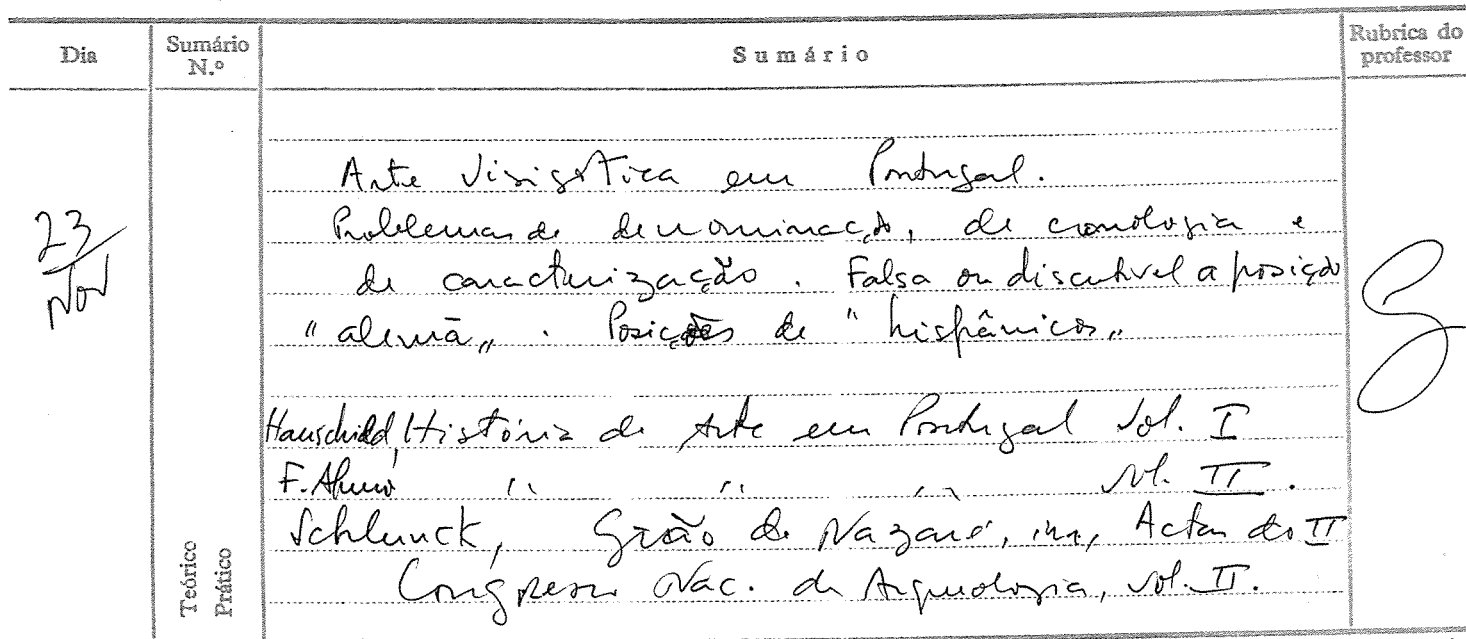 Dia
Sumário N.º
Sumário
Rubrica do professor
23/Nov
Arte Visigótica em Portugal.
Problemas de denominação, de cronologia e
de caracterização. Falsa ou discutível a posição
"alemã„. Posições de "hispânicos„
Hauschild, História da Arte em Portugal Vol. I
F. " " " vol. II.
Schlunck, de Nazaré, in, Actas do II
Congresso Nac. de Arqueologia, vol. II.
Teórico
Prático